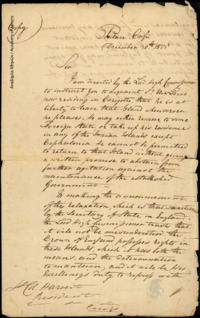 Copy
Palace Corfu
December 30th 185
Sir
I am directed by the Lord High Commissioner
to instruct you to acquaint Sr
now residing in Cerigotto that he is at
liberty to leave that Island whenever
he pleases. He may either remove to some
foreign State or take up his residence
in any of the Ionian Islands except
Cephalonia. He cannot be permitted
to return to that Island without giving
a written promise to abstain from
further agitation against the
maintenance of the established
Government.
In making the announcement
of the relaxation which is thus
by the Secretary of State in England
the Lord High Commissioner trusts that
it will not be misunderstood. The
Crown of England possesses rights in
these Islands which it has both
the means and the determination
to maintain; and it will be His
Excellency's duty to repress with
President
Cerigo